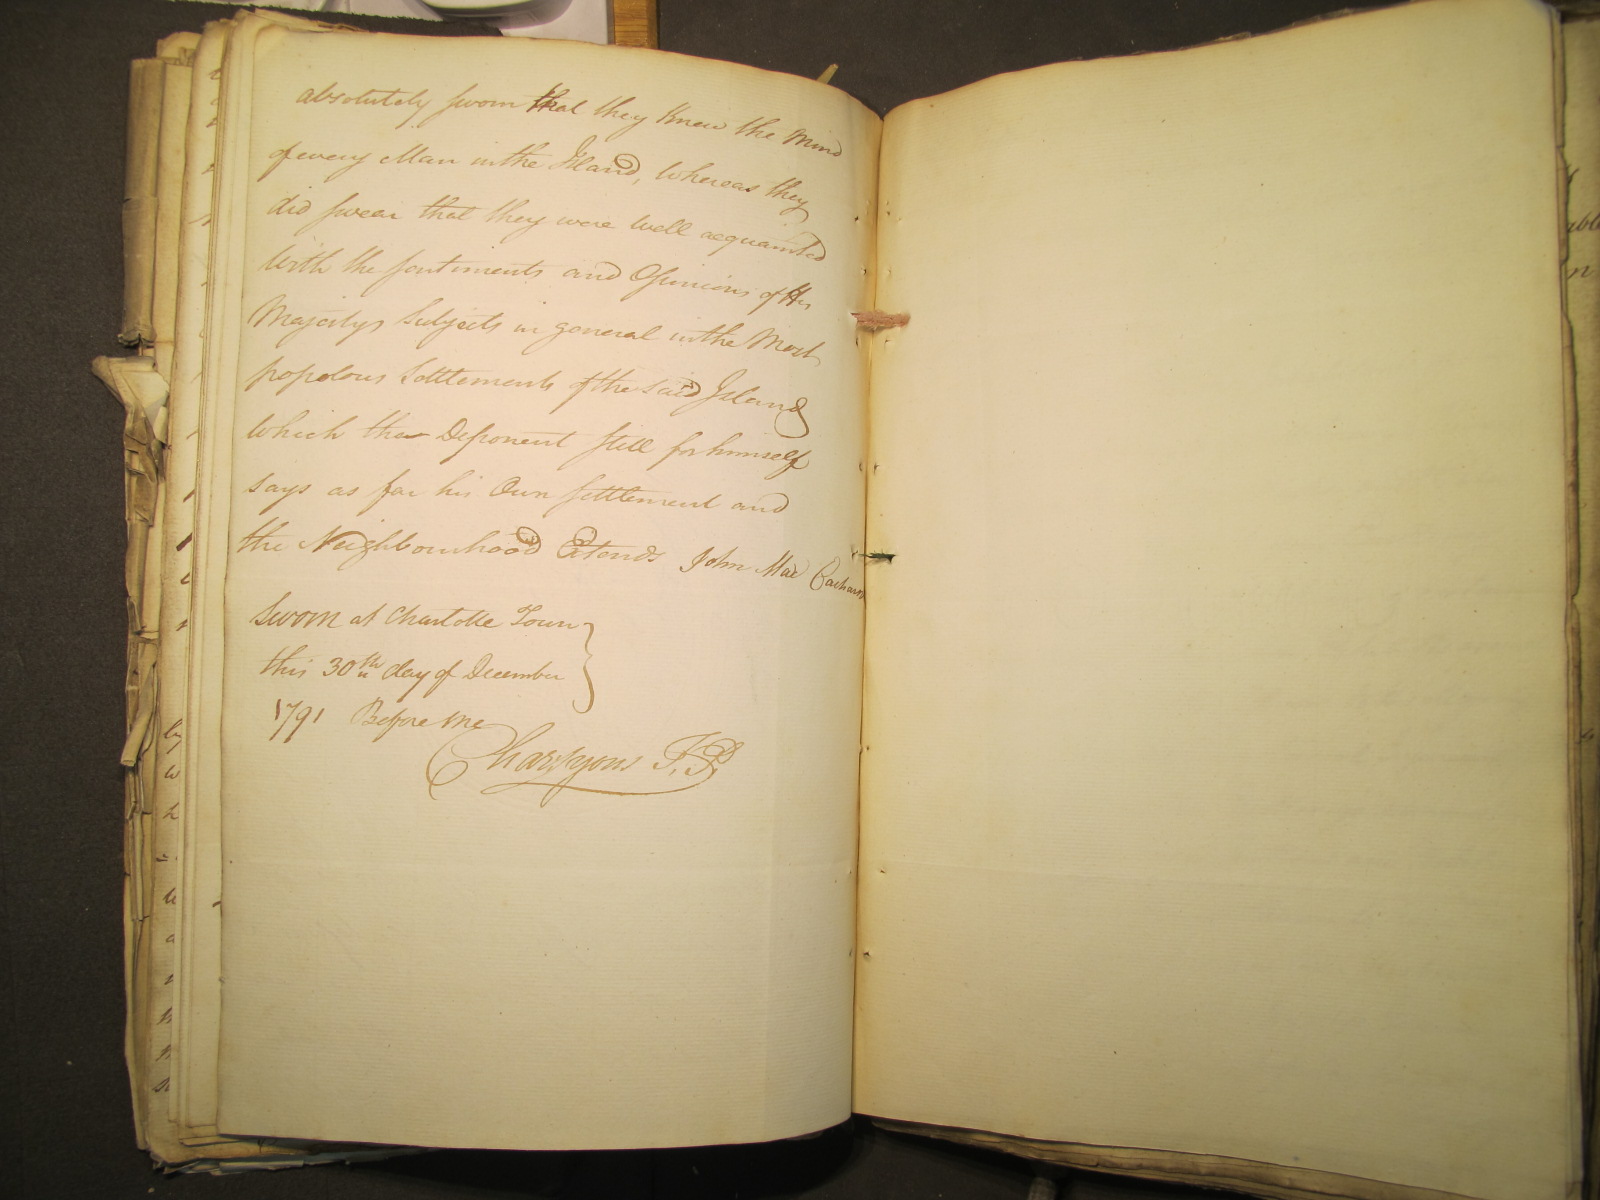 absolutely sworn that they Knew the Mind
of every Man in the Island, Whereas they
did swear that they were Well acquainted
With the sentiments and Opinions of His
Majestys Subjects in general in the Most
popolous Settlements of the said Island
Which the Deponent still for himself
says as far his Own settlement and
the Neighbourhood Extends John Mac Eachern
Sworn at Charlotte Town
this 30th day of December
1791 Before Me
Chas Lyons J.P.